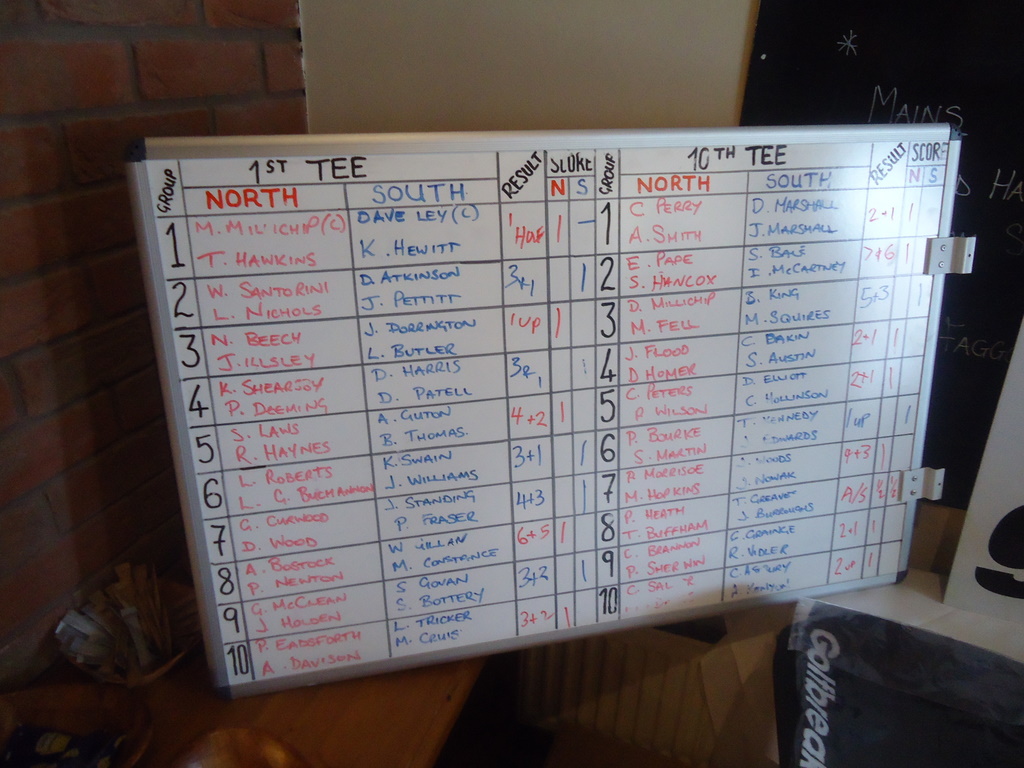 GROUP 1ST TEE RESULT SCORE GROUP 10TH TEE RESULT SCORE
NORTH SOUTH N S NORTH SOUTH N S
1 M. MILLICHIP (C) DAVE LEY (C) 1 Hole 1 – 1 C PERRY D. MARSHALL 2+1 1
T. HAWKINS K. HEWITT A. SMITH J. MARSHALL
2 W. SANTORINI D. ATKINSON 3+1 1 2 E. PAPE S. BALE 7+6 1
L. NICHOLS J. PETTITT S. HANCOX I. McCARTNEY
3 N. BEECH J. DORRINGTON 1 UP 1 3 D. MILLICHIP B. KING 5+3 1
J. ILLSLEY L. BUTLER M. FELL M. SQUIRES
4 K. SHEARSBY D. HARRIS 3+1 1 4 J. FLOOD C. BAKIN 2+1 1
P. DEEMING D. PATELL D HOMER S. AUSTIN
5 S. LAWS A. GUTON 4+2 1 5 C. PETERS D. ELLIOTT 2+1 1
R. HAYNES B. THOMAS. P WILSON C. HOLLINSON
6 L. ROBERTS K. SWAIN 3+1 1 6 P. BOURKE T. KENNEDY 1 UP 1
L. G. BUCHANNON J. WILLIAMS S. MARTIN EDWARDS
7 G. CURWOOD J. STANDING 4+3 1 7 P MORRISOE J. WOODS 4+3 1
D. WOOD P. FRASER M. HOPKINS J. NOWAK
8 A. BOSTOCK W GILLAN 6+5 1 8 P. HEATH T. GREAVES A/S ½ ½
P. NEWTON M. CONSTANCE T. BUFFHAM J. BURROUGHS
9 G. McCLEAN S GOVAN 3+2 1 9 C. BRANNON C. GRAINGE 2+1 1
J HOLDEN S. BOTTERY P SHERWIN R. VIDLER
10 P. EADSFORTH L. TRICKER 3+2 1 10 C. SAL C ASTURY 2 UP 1
A. DAVISON M. CRUIS
*
MAINS
HA
S
TAGG
Golfbreak